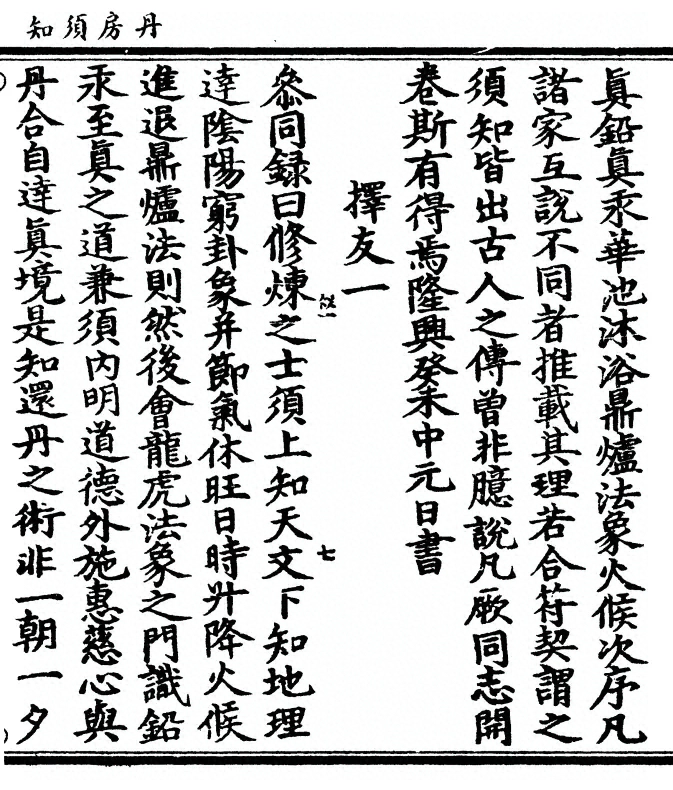 丹房須知
眞鉛眞汞華池沐浴鼎爐法象火候次序凡
諸家互說不同者推載其理若合符契謂之
須知皆出古人之傳曾非臆說凡厥同志開
卷斯有得焉隆興癸未中元日書
擇友一
叅同録曰修煉之士須上知天文下知地理
達陰陽窮卦象并節氣休旺日時升降火候
進退鼎爐法則然後會龍虎法象之門識鉛
汞至眞之道兼須內明道德外施惠慈心與
丹合自達眞境是知還丹之術非一朝一夕
七